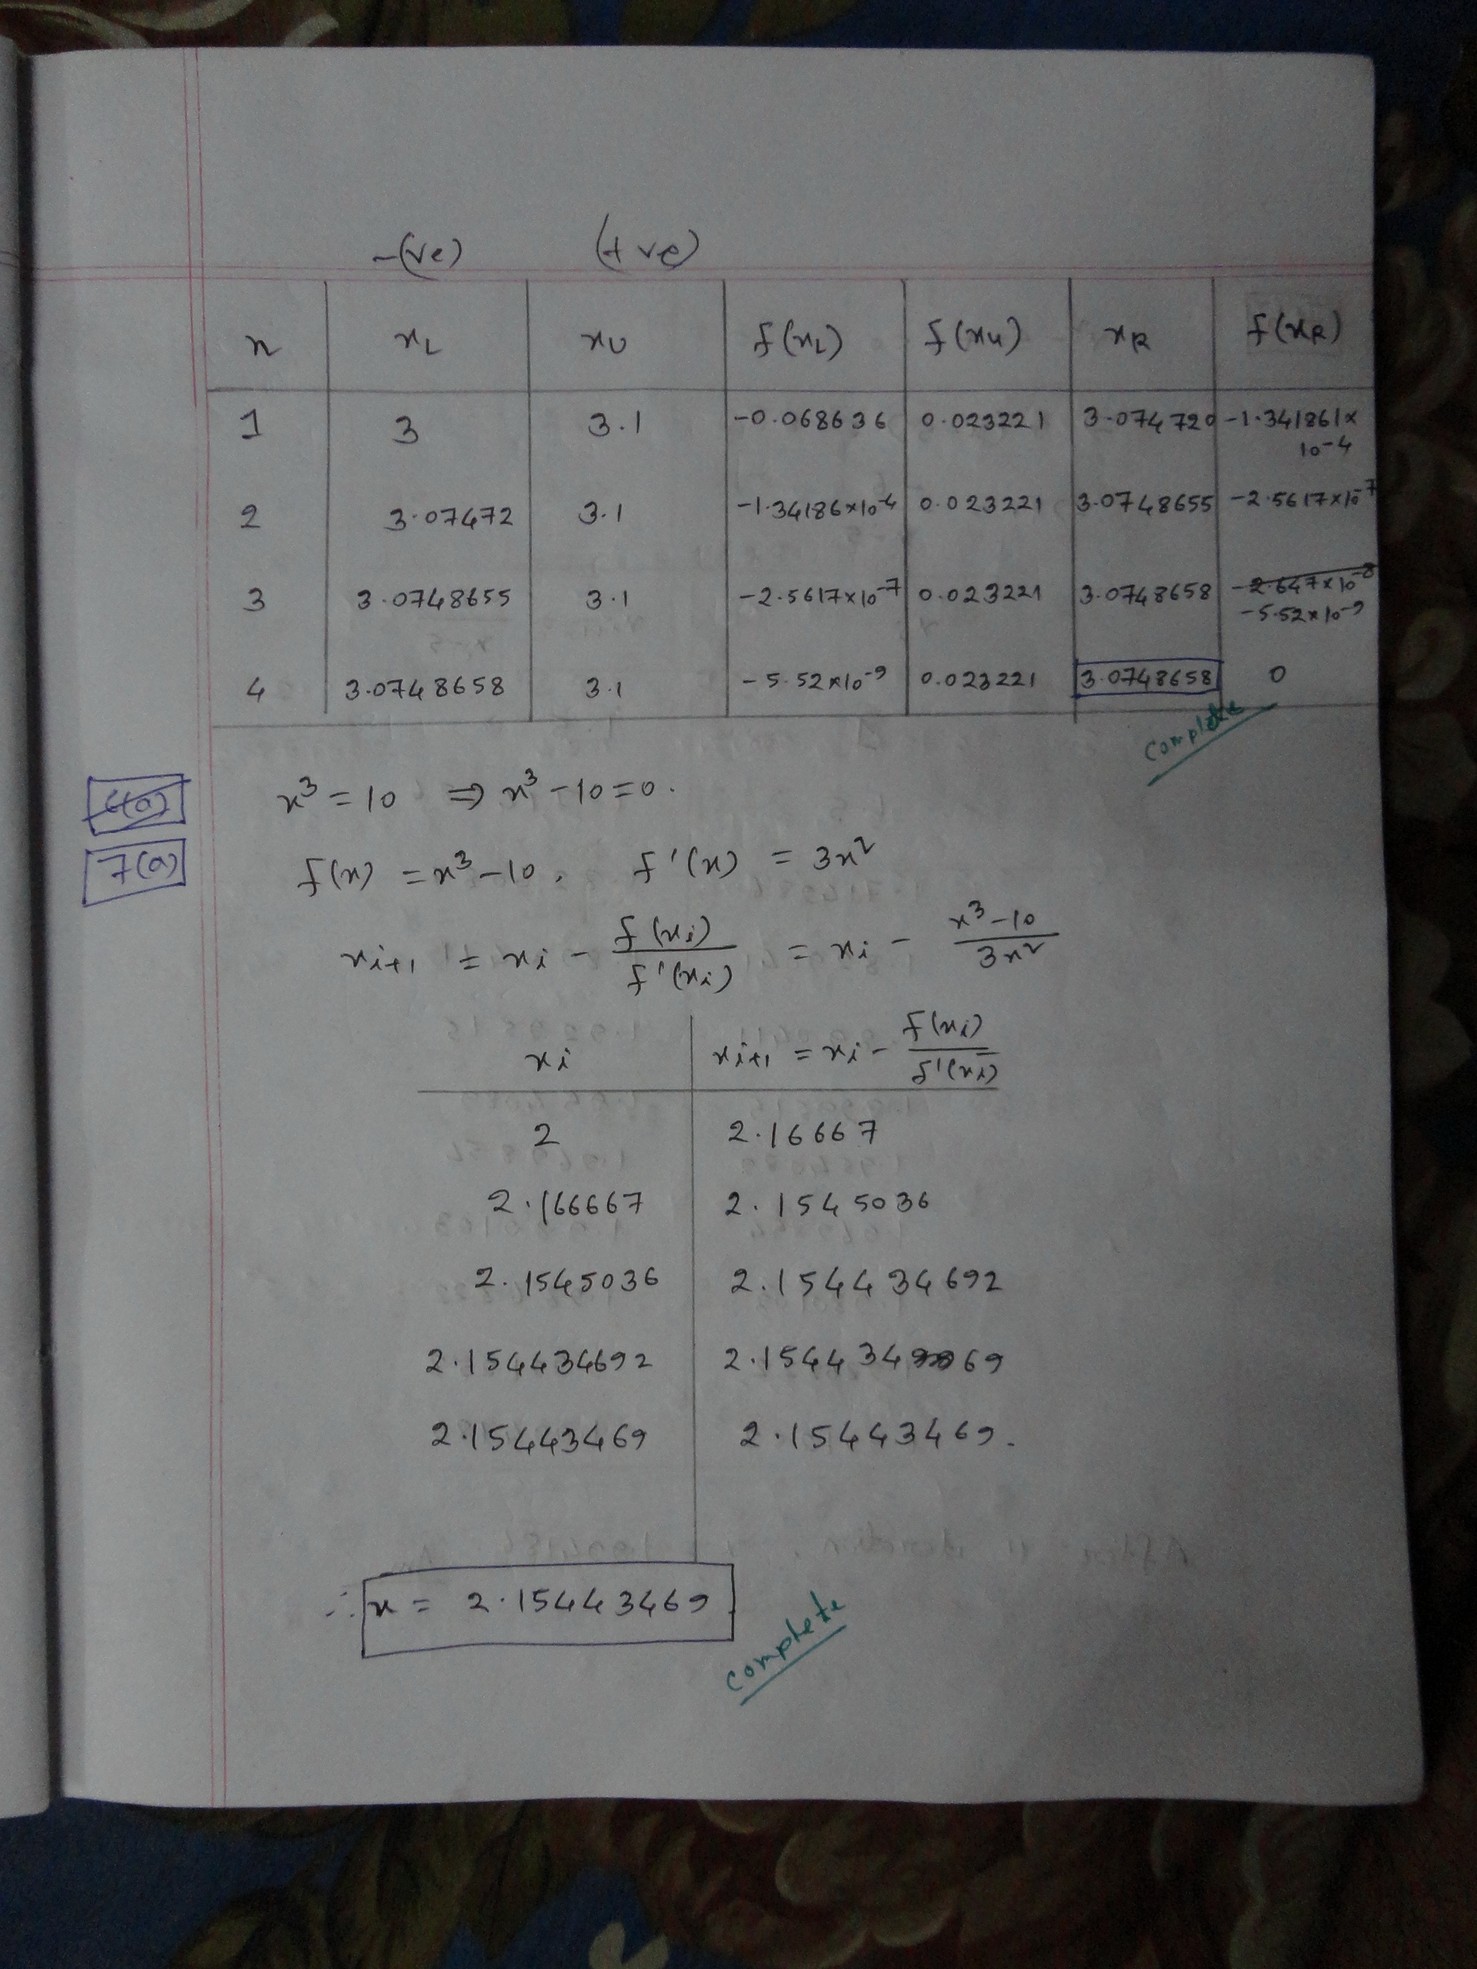 -(ve) (+ve)
n xL xU f(xL) f(xu) xR f(xR)
1 3 3.1 -0.068636 0.023221 3.074720 -1.341861×
10-4
2 3.07472 3.1 -1.34186×10-4 0.023221 3.0748655 -2.5617×10-7
3 3.0748655 3.1 -2.5617×10-7 0.023221 3.0748658 -2.647×10-8
-5.52×10-9
4 3.0748658 3.1 -5.52×10-9 0.023221 3.0748658 0
complete
x³ = 10 ⇒ x³ - 10 = 0.
7(a)
f(x) = x³ - 10, f'(x) = 3x²
xi+1 = xi - f(xi)/f'(xi) = xi - x³-10/3x²
xi xi+1 = xi - f(xi)/f'(xi)
2 2.16667
2.166667 2.1545036
2.1545036 2.154434692
2.154434692 2.15443469
2.15443469 2.15443469.
∴ x = 2.15443469
complete